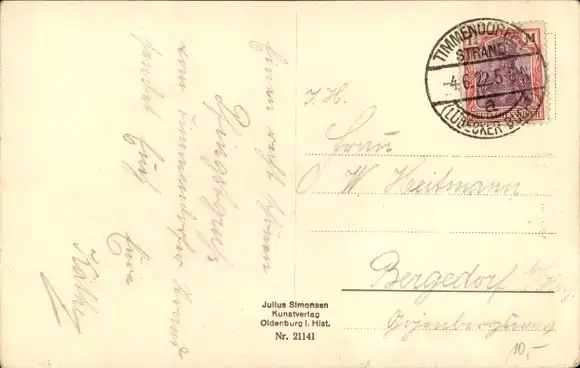 Einen recht schönen
Pfingstgruß
vom Timmendorfer Strand
sendet Euch
Eure
Käthe
TIMMENDORFER
STRAND
-4.6.22.5-
a
(LÜBECKER BUCHT)
M
I. H.
Frau
W Heitmann
Bergedorf
bei Hbg.
10,-
Julius Simonsen
Kunstverlag
Oldenburg i. Hlst.
Nr. 21141